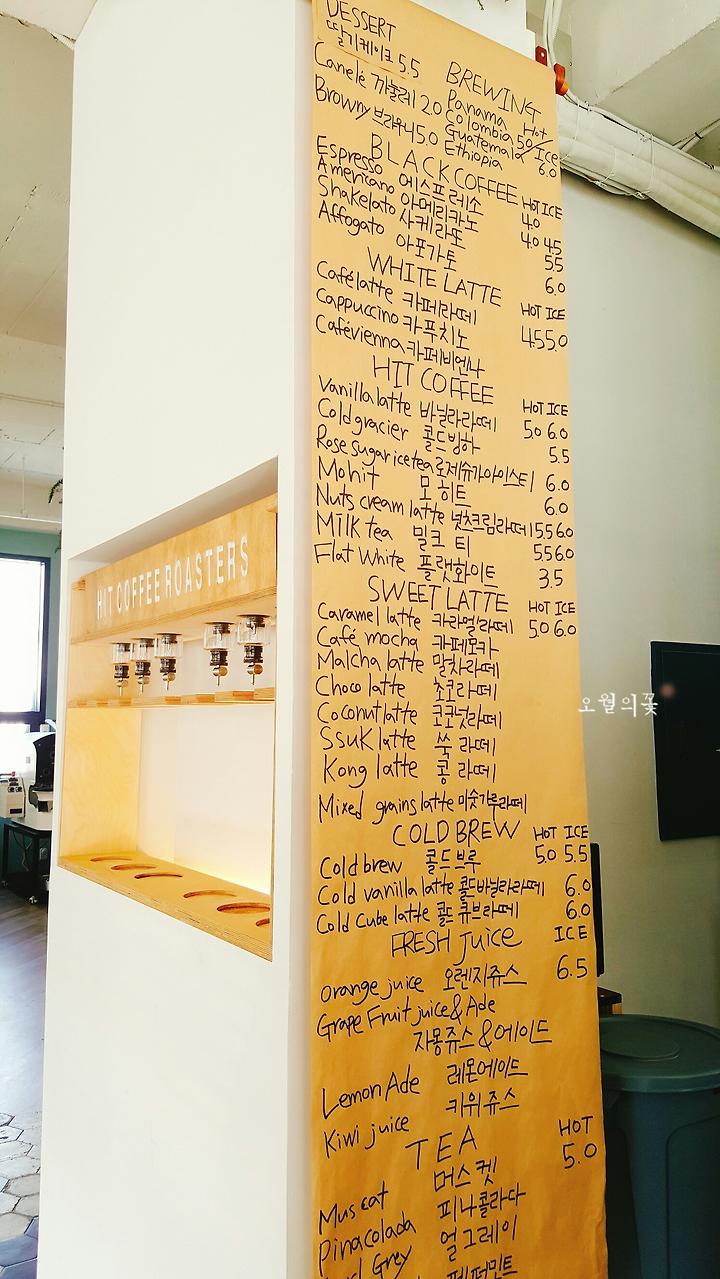 DESSERT
딸기케이크 5.5
Canelé 까눌레 2.0
Browny 브라우니 5.0
BREWING
Panama
Colombia
Guatemala
Ethiopia
Hot/ICE
5.0
6.0
BLACK COFFEE HOT ICE
Espresso 에스프레소 4.0
Americano 아메리카노 4.0 4.5
Shakelato 샤케라또 5.5
Affogato 아포가토 6.0
WHITE LATTE HOT ICE
Cafélatte 카페라떼 4.5 5.0
Cappuccino 카푸치노
Cafévienna 카페비엔나
HIT COFFEE HOT ICE
Vanillalatte 바닐라라떼 5.0 6.0
Coldgracier 콜드빙하 5.5
Rose sugar ice tea 로제슈가아이스티 6.0
Mohit 모히트 6.0
Nuts cream latte 넛츠크림라떼 5.5 6.0
Milk tea 밀크 티 5.5 6.0
Flat White 플랫화이트 3.5
SWEET LATTE HOT ICE
Caramel latte 카라멜라떼 5.0 6.0
Café mocha 카페모카
Malcha latte 말차라떼
Choco latte 초코라떼
Coconut latte 코코넛라떼
SsuK latte 쑥 라떼
Kong latte 콩 라떼
Mixed grains latte 미숫가루라떼
COLD BREW HOT ICE
Cold brew 콜드브루 5.0 5.5
Cold vanilla latte 콜드바닐라라떼 6.0
Cold Cube latte 콜드 큐브라떼 6.0
FRESH juice ICE
Orange juice 오렌지쥬스 6.5
Grape Fruit juice & Ade
자몽쥬스&에이드
Lemon Ade 레몬에이드
Kiwi juice 키위쥬스
TEA HOT
Muscat 머스켓 5.0
Pinacolada 피나콜라다
Earl Grey 얼그레이
페퍼민트
HIT COFFEE ROASTERS
오월의꽃